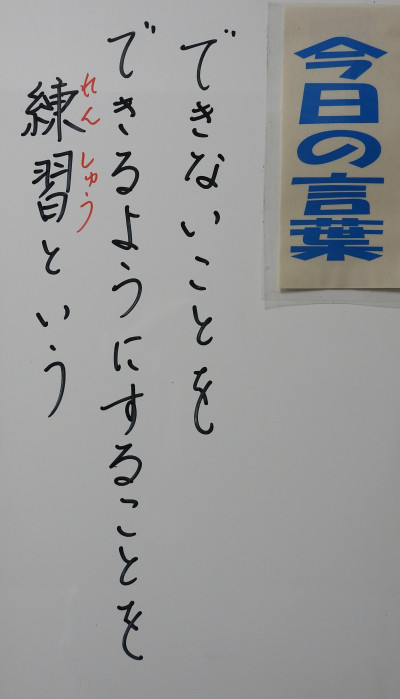 今日の言葉
できないことを
できるようにすることを
練習という
れんしゅう